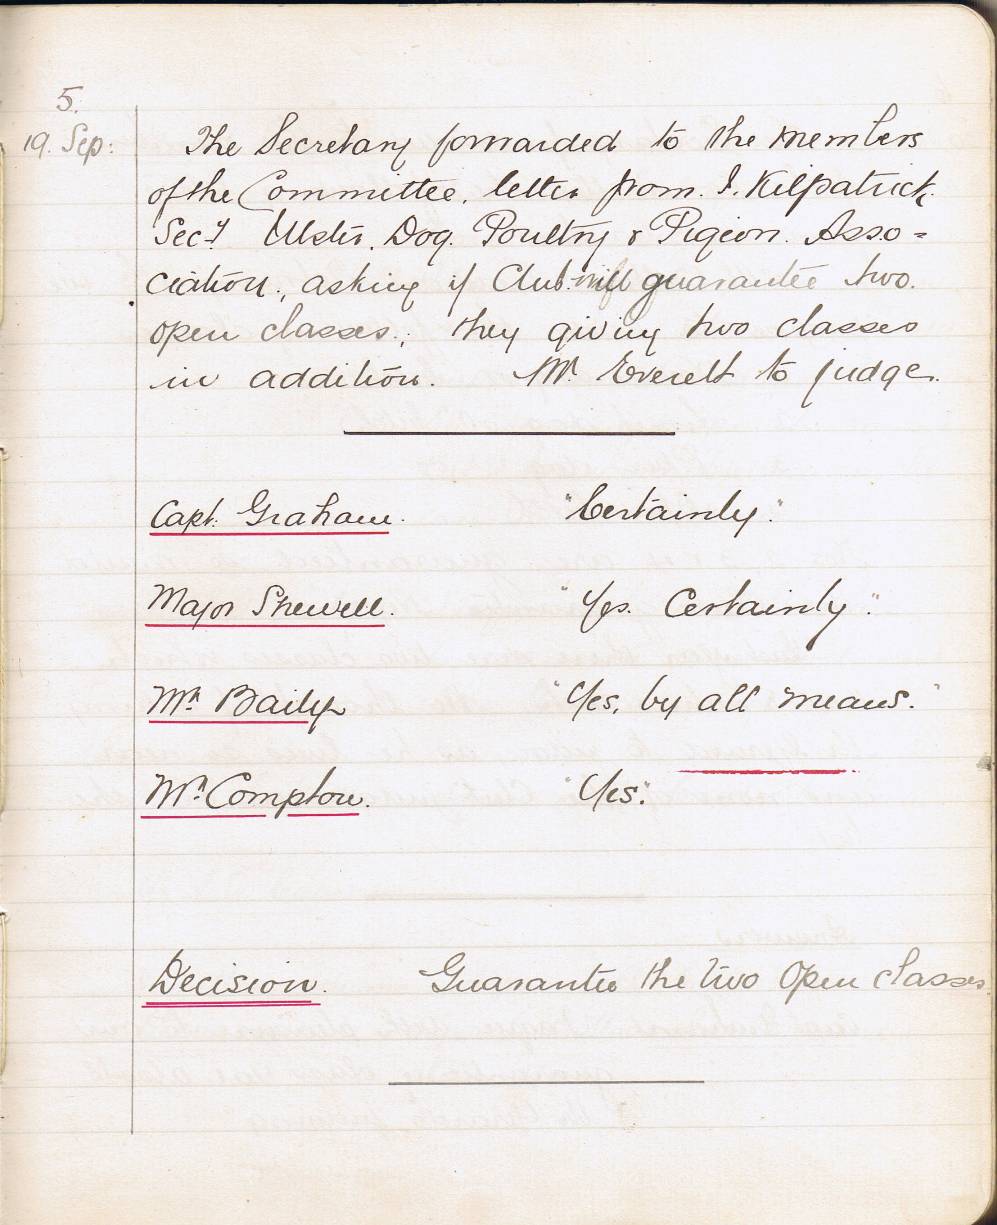 5.
19. Sep:
The Secretary forwarded to the Members
of the Committee, letter from J. Kilpatrick.
Secy Ulster, Dog. Poultry & Pigeon. Asso=
ciation, asking if Club will guarantee two
open classes, they giving two classes
in addition. Mr. Everett to judge.
Capt. Graham. "Certainly".
Major Shewell. "Yes. Certainly".
Mr. Baily "Yes, by all means."
Mr. Compton. "Yes."
Decision. Guarantee the two Open classes.